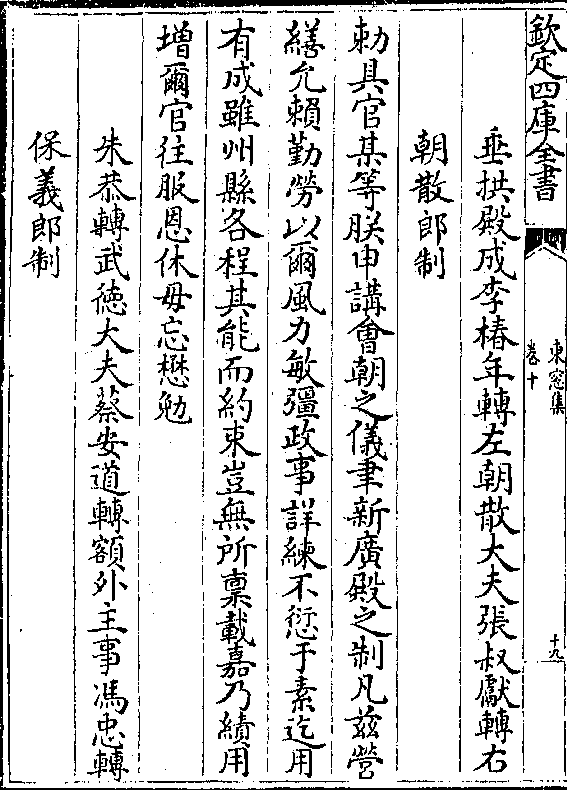 欽定四庫全書
東窓集
卷十
十九
垂拱殿成李椿年轉左朝散大夫張叔獻轉右
朝散郎制
勅具官某等朕申講會朝之儀聿新廣殿之制凡茲營
繕允賴勤勞以爾風力敏彊政事詳練不愆于素迄用
有成雖州縣各程其能而約束豈無所稟載嘉乃績用
增爾官往服恩休毋忘懋勉
朱恭轉武徳大夫蔡安道轉額外主事馮忠轉
保義郎制